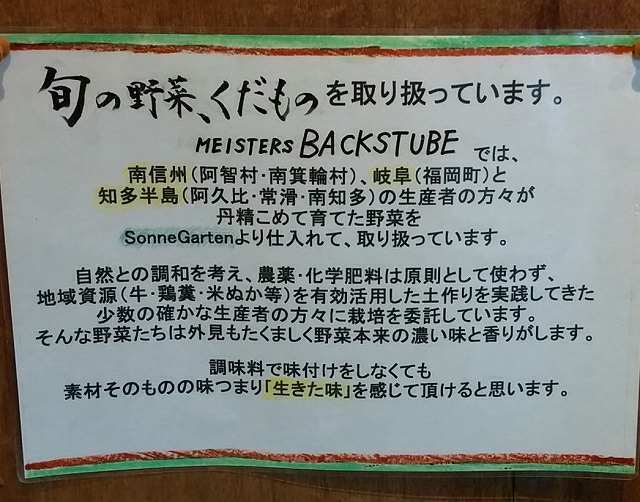 旬の野菜、くだものを取り扱っています。
MEISTERS BACKSTUBE では、
南信州(阿智村・南箕輪村)、岐阜(福岡町)と
知多半島(阿久比・常滑・南知多)の生産者の方々が
丹精こめて育てた野菜を
SonneGartenより仕入れて、取り扱っています。
自然との調和を考え、農薬・化学肥料は原則として使わず、
地域資源(牛・鶏糞・米ぬか等)を有効活用した土作りを実践してきた
少数の確かな生産者の方々に栽培を委託しています。
そんな野菜たちは外見もたくましく野菜本来の濃い味と香りがします。
調味料で味付けをしなくても
素材そのものの味つまり「生きた味」を感じて頂けると思います。